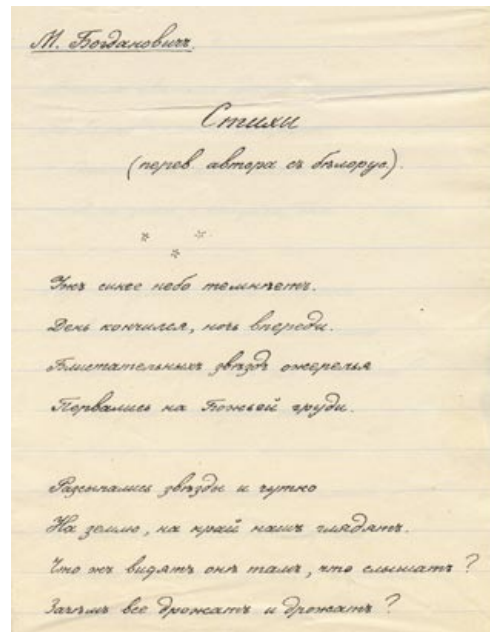 М. Богдановичъ.
Стихи
(перев. автора съ бѣлорус.).
* *
*
Ужъ синее небо темнѣетъ.
День кончился, ночь впереди.
Блистательныхъ звѣздъ ожерелья
Порвались на Божьей груди.
Разсыпались звѣзды и чутко
На землю, на край нашъ глядятъ.
Что жъ видятъ онѣ тамъ, что слышатъ?
Зачѣмъ все дрожатъ и дрожатъ?